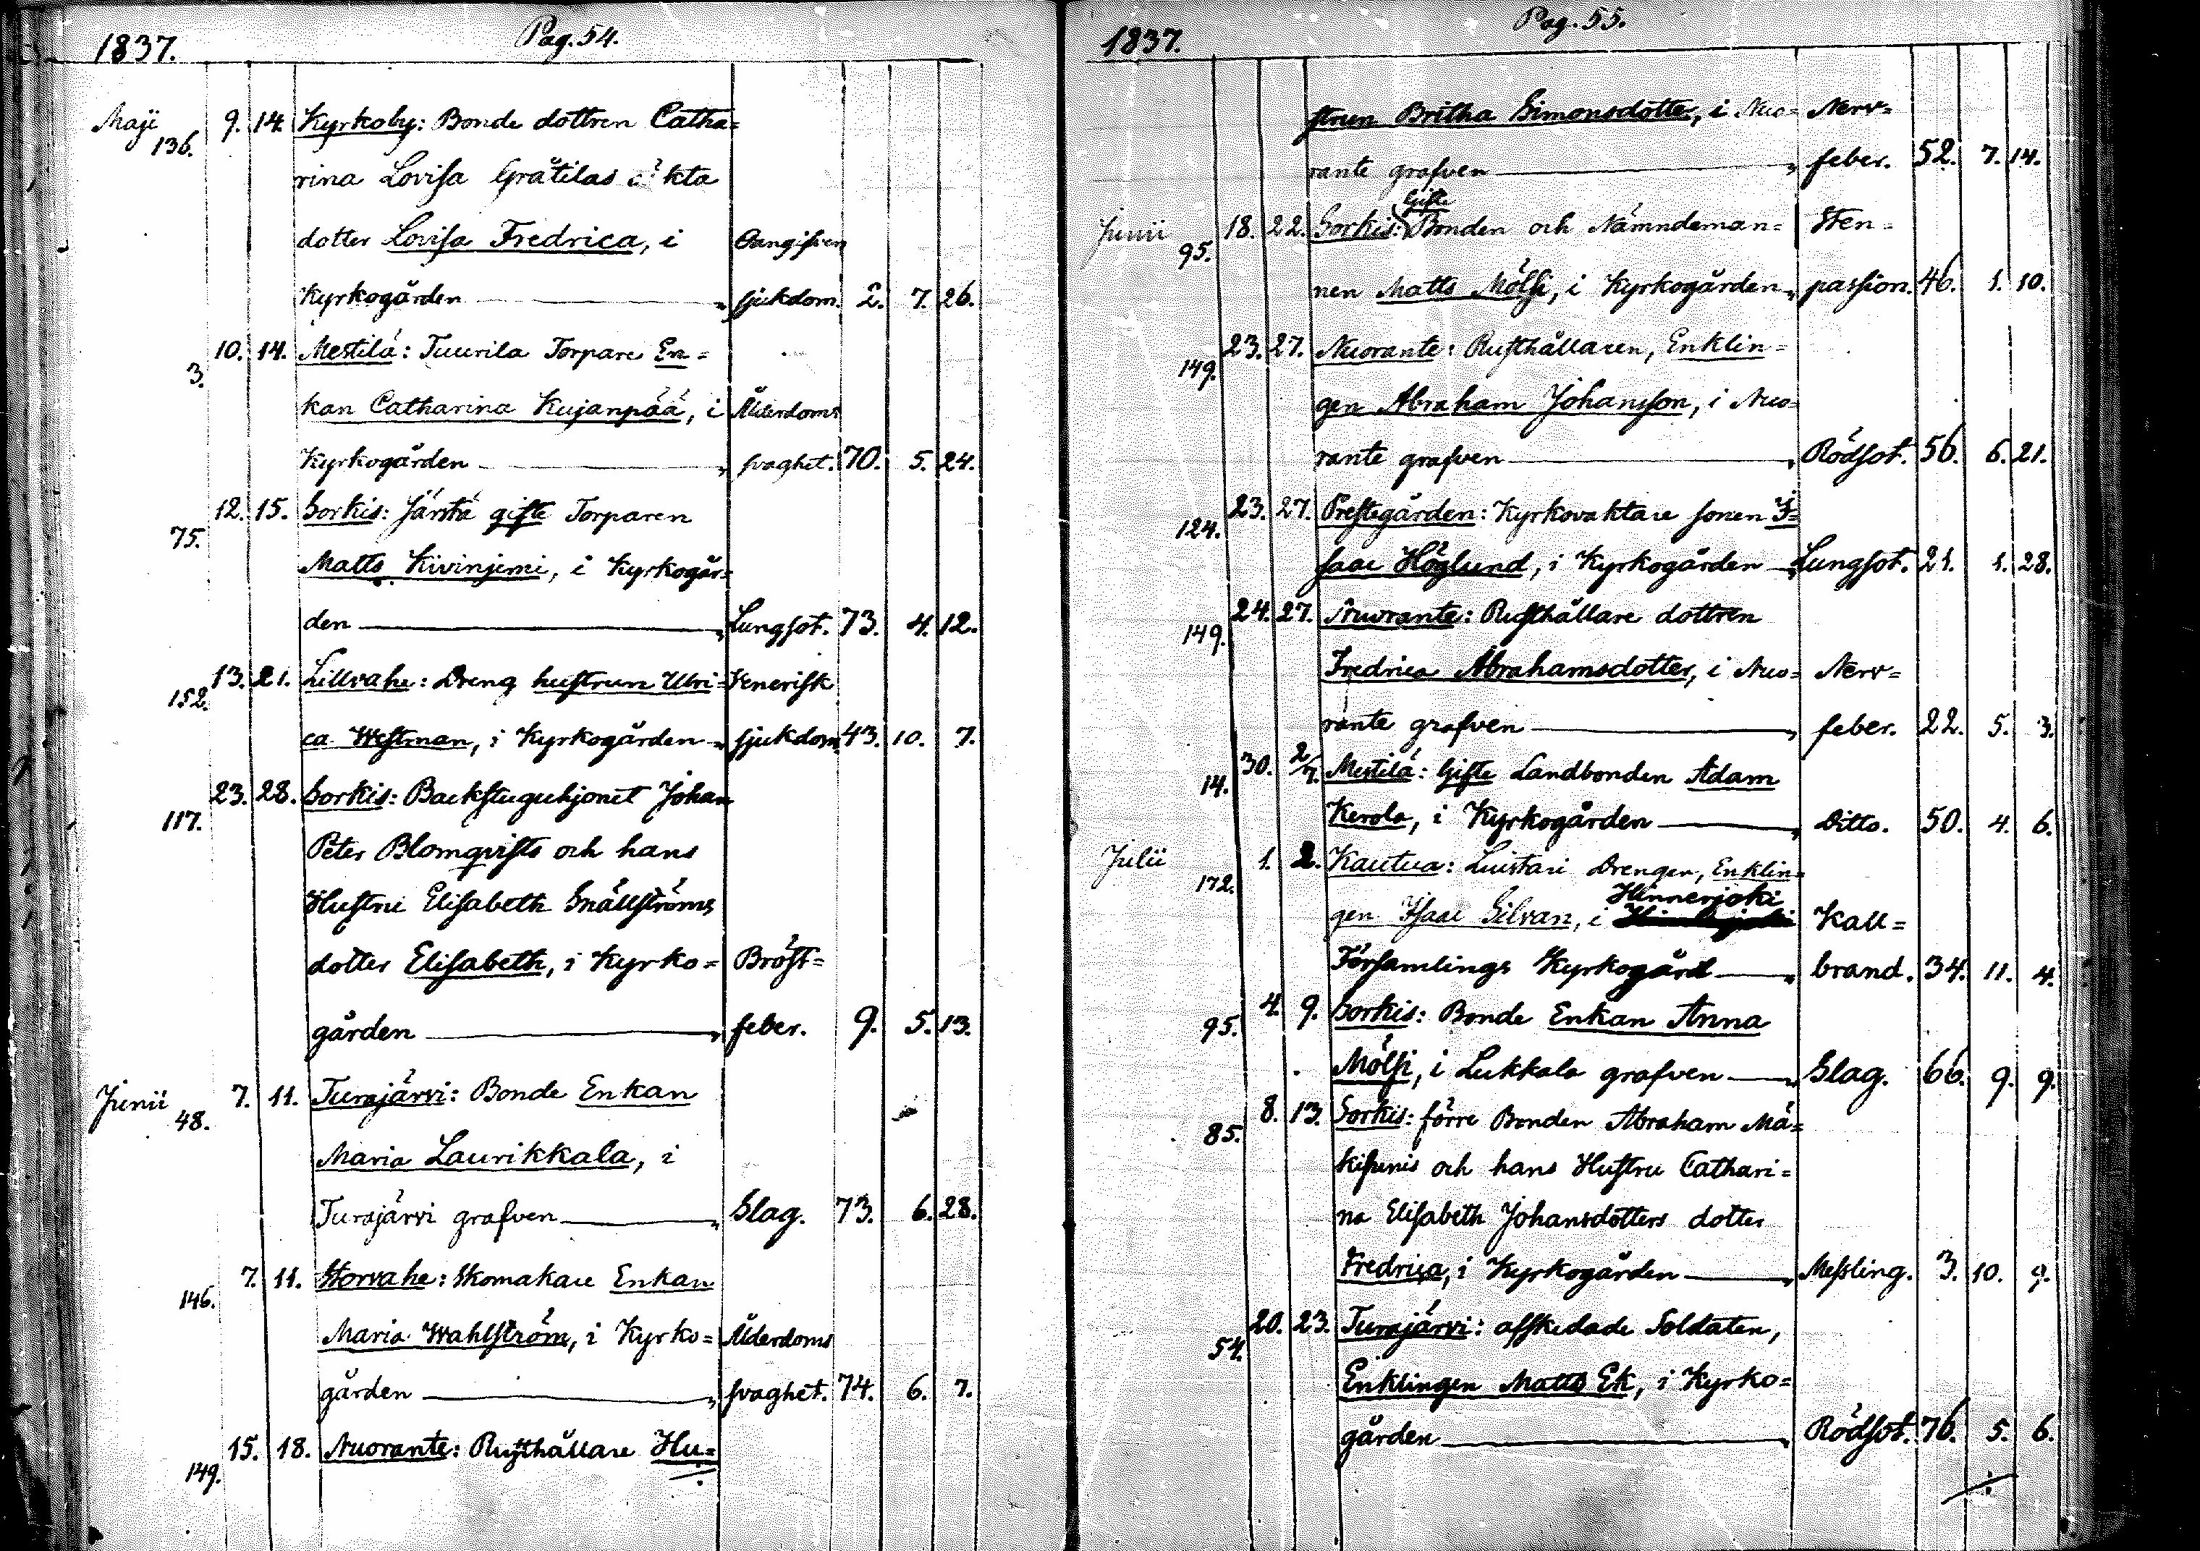 1837. Pag. 54.
Maji 136. 9. 14. Kyrkoby: Bonde dottren Catha=
rina Lovisa Gråtilas äkta
dotter Lovisa Fredrica, i Oangifven
Kyrkogården " sjukdom. 2. 7. 26.
3. 10. 14. Mestilä: Tuurila Torpare En=
kan Catharina Kujanpää, i Ålderdoms
Kyrkogården " svaghet. 70. 5. 24.
75. 12. 15. Sorkis: Järstä gifte Torparen
Matts Kivinjemi, i Kyrkogår=
den " Lungsot. 73. 4. 12.
152. 13. 21. Lillvahe: Dreng hustrun Ulri= Venerisk
ca Westman, i Kyrkogården " sjukdom 43. 10. 7.
117. 23. 28. Sorkis: Backstuguhjonet Johan
Peter Blomqvists och hans
Hustru Elisabeth Snällströms
dotter Elisabeth, i Kyrko= Bröst=
gården " feber. 9. 5. 13.
Junii 48. 7. 11. Turajärvi: Bonde Enkan
Maria Laurikkala, i
Turajärvi grafven " Slag. 73. 6. 28.
146. 7. 11. Storvahe: Skomakare Enkan
Maria Wahlström, i Kyrko= Ålderdoms
gården " svaghet. 74. 6. 7.
149. 15. 18. Nuorante: Rusthållare Hu=
1837. Pag. 55.
strun Britha Simonsdotter, i Nuo= Nerv=
rante grafven " feber. 52. 7. 14.
Junii 95. 18. 22. Sorkis: Gifte Bonden och Nämndeman= Sten=
nen Matts Mölsi, i Kyrkogården " passion. 46. 1. 10.
149. 23. 27. Nuorante: Rusthållaren, Enklin=
gen Abraham Johansson, i Nuo=
rante grafven " Rödsot. 56. 6. 21.
124. 23. 27. Prestegården: Kyrkovaktare sonen I=
saac Höglund, i Kyrkogården " Lungsot. 21. 1. 28.
149. 24. 27. Nuorante: Rusthållare dottren
Fredrica Abrahamsdotter, i Nuo= Nerv=
rante grafven " feber. 22. 5. 3.
14. 30. 2/7. Mestilä: Gifte Landbonden Adam
Kerola, i Kyrkogården " Ditto. 50. 4. 6.
Julii 172. 1. 2. Kautua: Luistari Drengen, Enklin=
gen Isaac Silvan, i Hinnerjoki Kall=
Församlings Kyrkogård " brand. 34. 11. 4.
95. 4. 9. Sorkis: Bonde Enkan Anna
Mölsi, i Lukkala grafven " Slag. 66. 9. 9.
85. 8. 13. Sorkis: förre Bonden Abraham Mä=
kisunis och hans Hustru Cathari=
na Elisabeth Johansdotters dotter
Fredrica, i Kyrkogården " Messling. 3. 10. 9.
54. 20. 23. Turajärvi: afskedade Soldaten,
Enklingen Matts Ek, i Kyrko=
gården " Rödsot. 76. 5. 6.